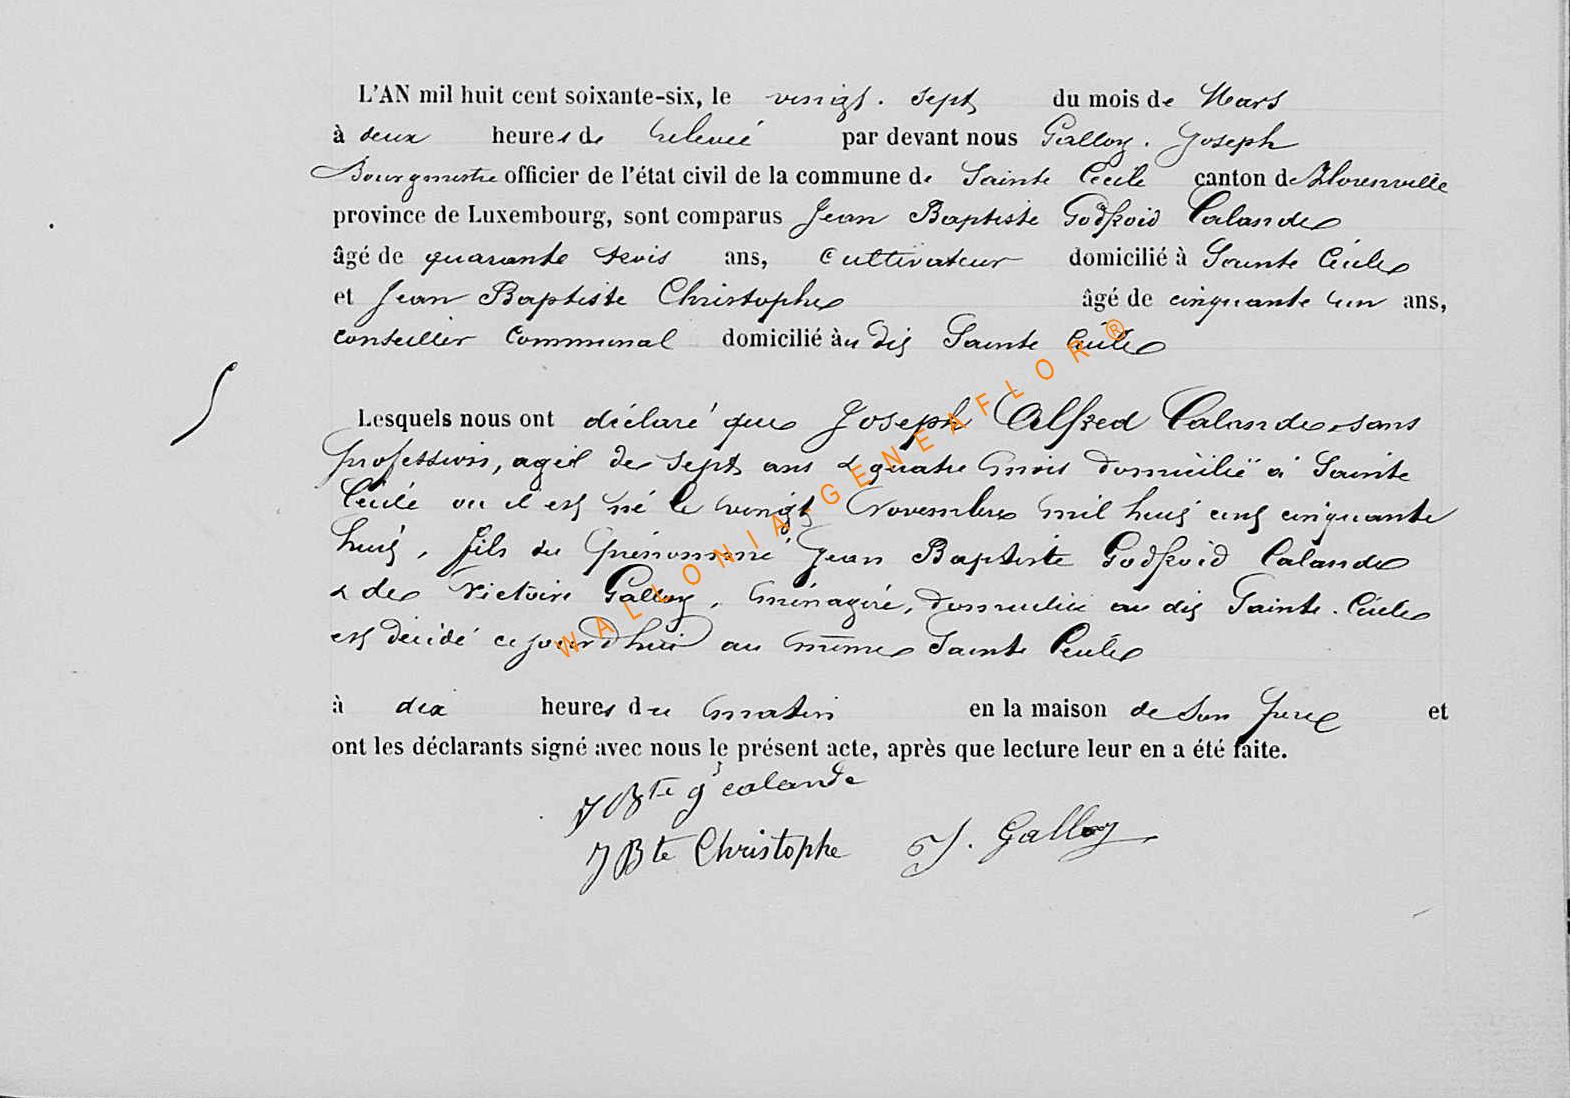 L'AN mil huit cent soixante-six, le vingt. sept du mois de Mars
à deux heures de relevée par devant nous Galloy. Joseph
Bourgmestre officier de l'état civil de la commune de Sainte Cecile canton de Florenville
province de Luxembourg, sont comparus Jean Baptiste Godfroid Calande
âgé de quarante trois ans, cultivateur domicilié à Sainte Cécile
et Jean Baptiste Christophe âgé de cinquante un ans,
conseiller Communal domicilié au dit Sainte Cécile
Lesquels nous ont déclaré que Joseph Alfred Calande, sans
profession, agé de sept ans & quatre mois domicilié à Sainte
Cécile ou il est né le vingt Novembre mil huit cent cinquante
huit, fils du prénommé Jean Baptiste Godfroid Calande
& de Victoire Galloy, ménagère, domiciliée au dit Sainte. Cécile
est décédé cejourd'hui au même Sainte Cécile
à dix heures du matin en la maison de son père et
ont les déclarants signé avec nous le présent acte, après que lecture leur en a été faite.
J Bte gd calande
J Bte Christophe J. Galloy
WALLONIA-GENEAFLOR®